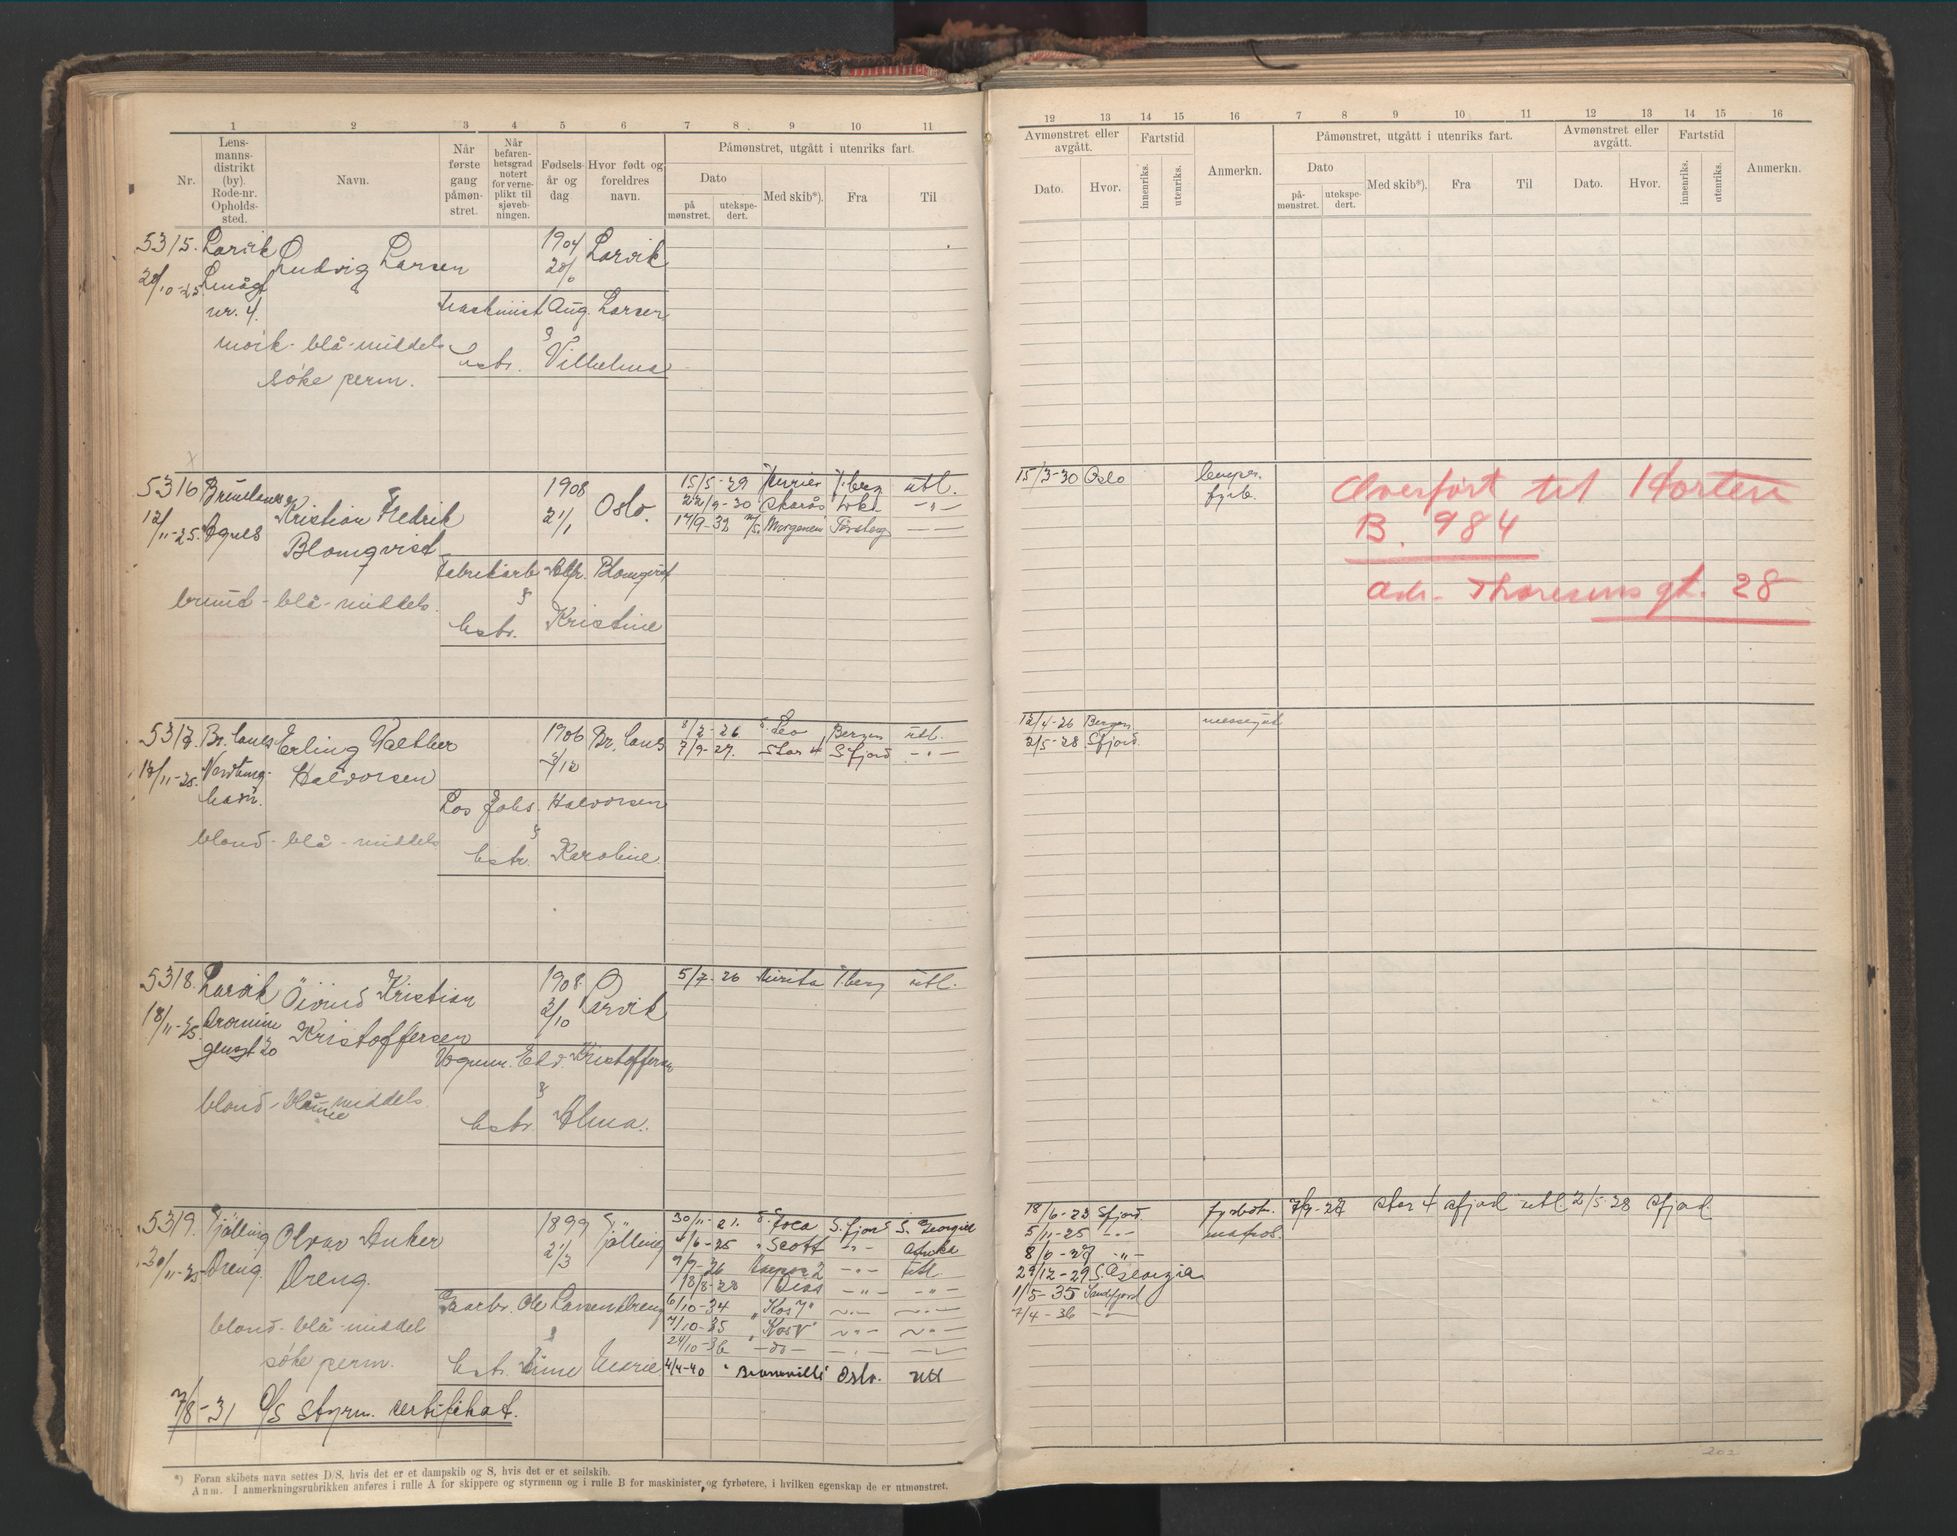 1 2 3 4 5 6 7 8 9 10 11
Nr.
Lens-
manns-
distrikt
(by).
Rode-nr.
Opholds-
sted.
Navn.
Når
første
gang
påmøn-
stret.
Når
befaren-
hetsgrad
notert
for verne-
plikt til
sjøveb-
ningen.
Fødsels-
år og
dag.
Hvor født og
foreldres
navn.
Påmønstret, utgått i utenriks fart.
Dato
på
mønstret.
utekspe-
dert.
Med skib*).
Fra
Til
5315. Larvik Ludvig Larsen 1904 Larvik
nr. 4.
Maskinist Aug. Larsen
&
hstr. Vilhelmа
mørk - blå - middels
søke perm.
5316 Brunlanes Kristian Fredrik 1908 Oslo.
12/11-25. Agnes Blomqvist 21/1
15/5-29 T.berg utl.
22/9-30
17/9-32 Morgenen Tønsberg
Fabrikarb. Alfr. Blomqvist
&
hstr. Kristine
brund - blå - middels.
5317 Br.lanes Erling Walther 1906 Br.lanes
Halvorsen
8/2-26 Leo Bergen utl.
7/9-27. Star 4 S.fjord
Los Johs. Halvorsen
&
hstr. Karoline.
blond - blå - middels
5318. Larvik Öivind Kristian 1908. Larvik
18/11-25. Kristoffersen 2/10
5/7-26 T.berg utl.
Vognm. Edv. Kristoffersen
&
hstr. Alma.
blond - middels.
5319. Tjølling Olvar Anker 1899 Tjølling
30/11-25 Dreng. Dreng. 2/3
30/11-21. Foca S.fjord S. Georgia
Scott
utl.
18/8-28
6/10-34 "Kos 7"
7/10-35 "Kos V"
24/10-36 - do -
4/4-40 Oslo. utl
Ole Larsen Dreng
&
hstr. Marie
blond - blå - middel
søke perm.
7/8-31 O/S styrm. certifikat.
*) Foran skibets navn settes D/S, hvis det er et dampskib og S, hvis det er et seilskib.
Anm. I anmerkningsrubrikken anføres i rulle A for skippere og styrmenn og i rulle B for maskinister og fyrbøtere, i hvilken egenskap de er utmønstret.
12 13 14 15 16 7 8 9 10 11 12 13 14 15 16
Avmønstret eller
avgått.
Dato.
Hvor.
Fartstid
innenriks.
utenriks.
Anmerkn.
Påmønstret, utgått i utenriks fart.
Dato
på-
mønstret.
utekspe-
dert.
Med skib*).
Fra
Til
Avmønstret eller
avgått.
Dato.
Hvor.
Fartstid
innenriks.
utenriks.
Anmerkn.
15/3-30 Oslo lemper.
fyrb.
Overført til Horten
B. 984
adr. Thoresensgt. 28
12/4-26 Bergen
2/5-28 Sfjord.
18/6-23 Sfjord. fyrbøt. 7/9-27 star 4 sfjord utl 2/5-28 sfjord.
5/11-25 - " - matros.
29/12-29 S. Georgia
1/5-35 Sandfjord
7/4-36 - " -
202